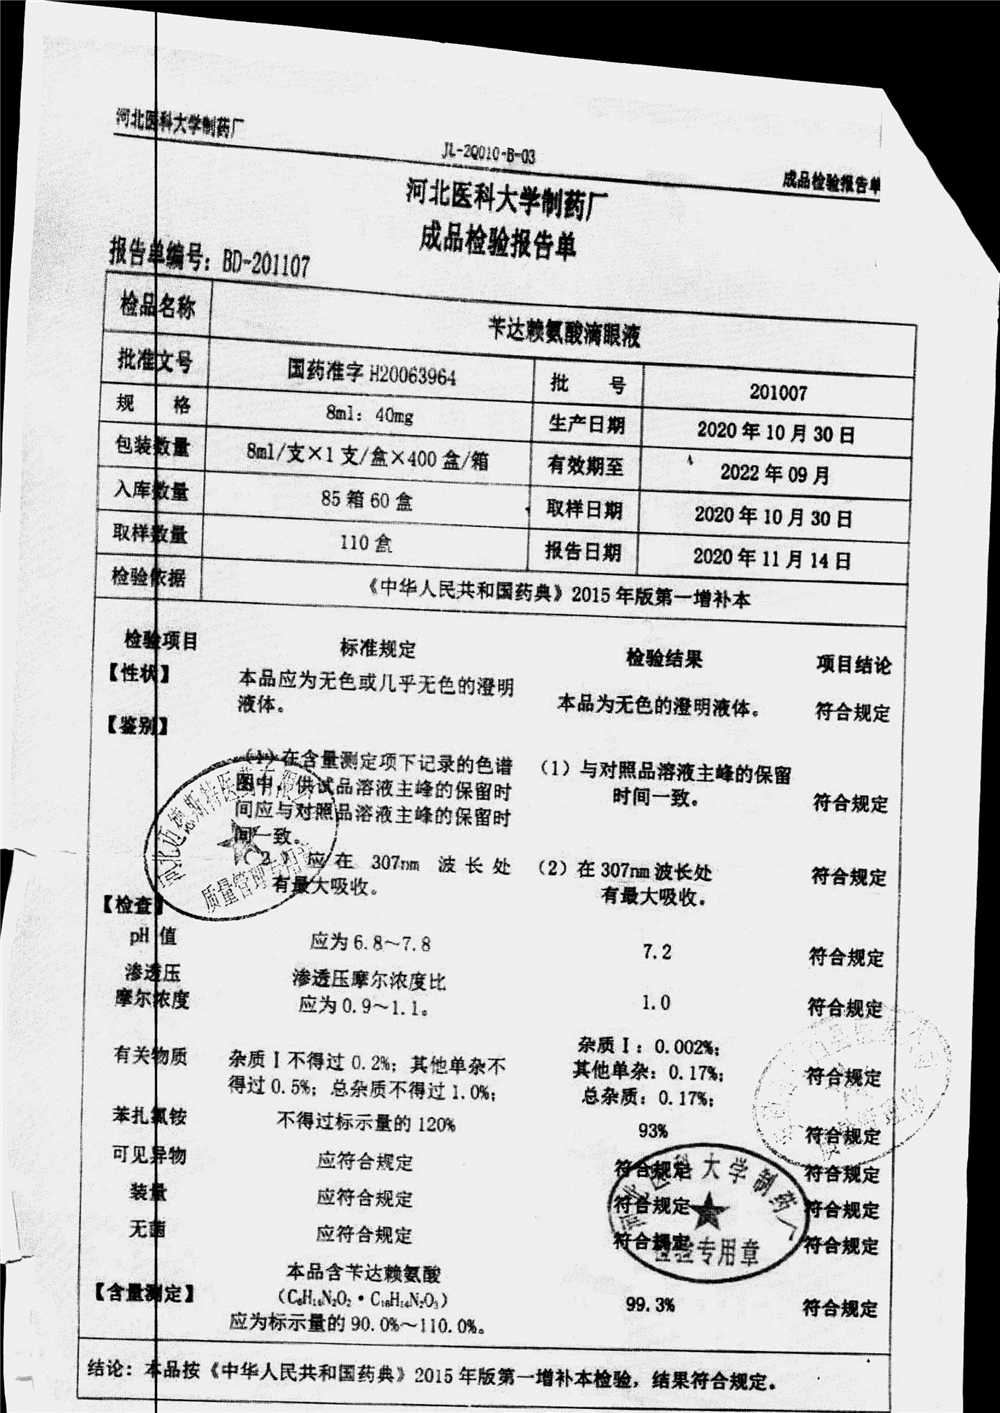 河北医科大学制药厂
JL-2Q010-B-03
成品检验报告单
河北医科大学制药厂
成品检验报告单
报告单编号：BD-201107
检品名称 苄达赖氨酸滴眼液
批准文号 国药准字H20063964 批 号 201007
规 格 8ml：40mg 生产日期 2020年10月30日
包装数量 8ml/支×1支/盒×400盒/箱 有效期至 2022年09月
入库数量 85箱60盒 取样日期 2020年10月30日
取样数量 110盒 报告日期 2020年11月14日
检验依据 《中华人民共和国药典》2015年版第一增补本
检验项目 标准规定 检验结果 项目结论
【性状】 本品应为无色或几乎无色的澄明 本品为无色的澄明液体。 符合规定
液体。
【鉴别】
（1）在含量测定项下记录的色谱 （1）与对照品溶液主峰的保留
图中，供试品溶液主峰的保留时 时间一致。 符合规定
间应与对照品溶液主峰的保留时
间一致。
（2）应在 307nm 波长处 （2）在307nm波长处 符合规定
有最大吸收。 有最大吸收。
【检查】
pH值 应为6.8～7.8 7.2 符合规定
渗透压 渗透压摩尔浓度比
摩尔浓度 应为0.9～1.1。 1.0 符合规定
有关物质 杂质Ⅰ不得过0.2%；其他单杂不 杂质Ⅰ：0.002%；
得过0.5%；总杂质不得过1.0%； 其他单杂：0.17%； 符合规定
总杂质：0.17%；
苯扎氯铵 不得过标示量的120% 93% 符合规定
可见异物 应符合规定 符合规定 符合规定
装量 应符合规定 符合规定 符合规定
无菌 应符合规定 符合规定 符合规定
【含量测定】 本品含苄达赖氨酸
（C₆H₁₄N₂O₂·C₁₆H₁₄N₂O₃） 99.3% 符合规定
应为标示量的90.0%～110.0%。
结论：本品按《中华人民共和国药典》2015年版第一增补本检验，结果符合规定。
河北迈德斯特医药有限公司
质量管理专用章
河北医科大学制药厂
检验专用章